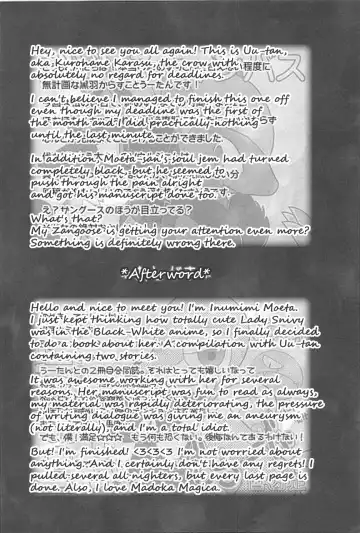 Hey, nice to see you all again! This is Uu-tan,
aka Kurohane Karasu, the crow with
absolutely no regard for deadlines.
程度に
無計画な黒羽からすことうーたんです!
I can't believe I managed to finish this one off
even though my deadline was the first of
the month and I did practically nothing
until the last minute.
ることができました
In addition, Moeta-san's soul jem had turned
completely black, but he seemed to
push through the pain alright
and got his manuscript done too.
え?ザングースのほうが目立ってる?
What's that?
My Zangoose is getting your attention even more?
Something is definitely wrong there.
*Afterword*
Hello and nice to meet you! I'm Inumimi Moeta.
I just kept thinking how totally cute Lady Snivy
was in the Black-White anime, so I finally decided
to do a book about her. A compilation with Uu-tan
containing two stories.
うーたんとの2冊目合同誌。それはとっても嬉しいなって
It was awesome working with her for several
reasons. Her manuscript was fun to read as always,
my material was rapidly deteriorating, the pressure
of writing dialogue was giving me an aneurysm
(not literally), and I'm a total idiot.
でも、僕!満足☆☆☆ もう何も怖くない。後悔なんてあるわけない!
But! I'm finished! <3<3<3 I'm not worried about
anything. And I certainly don't have any regrets! I
pulled several all-nighters, but every last page is
done. Also, I love Madoka Magica.